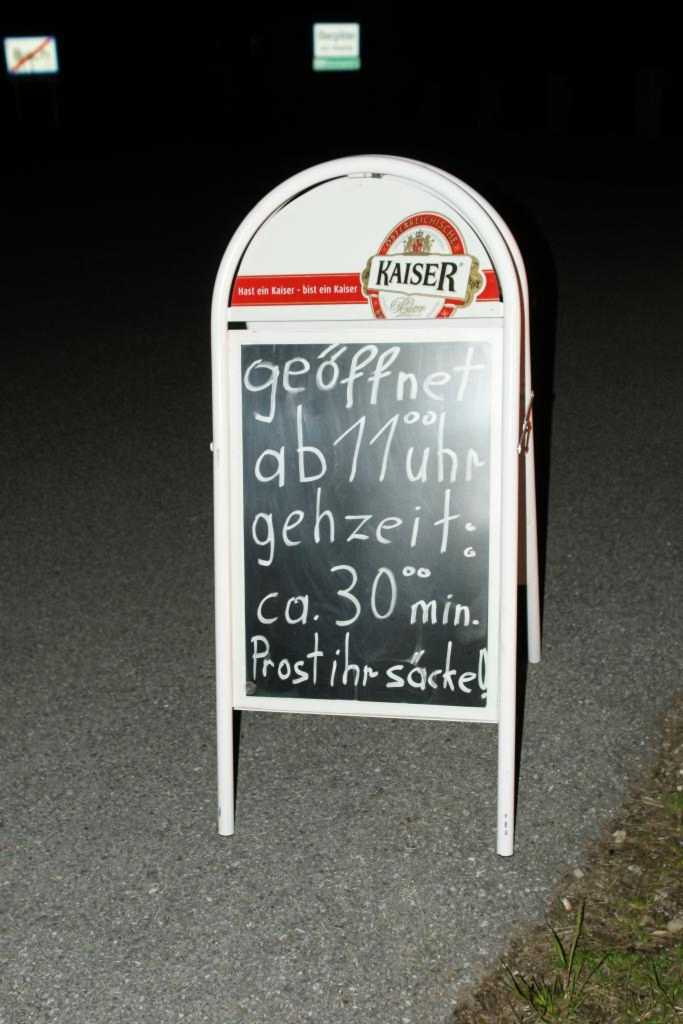 ÖSTERREICHISCHES
KAISER
Bier
Hast ein Kaiser - bist ein Kaiser
geöffnet
ab 11⁰⁰ uhr
gehzeit:
ca. 30⁰⁰ min.
Prost ihr säcke!